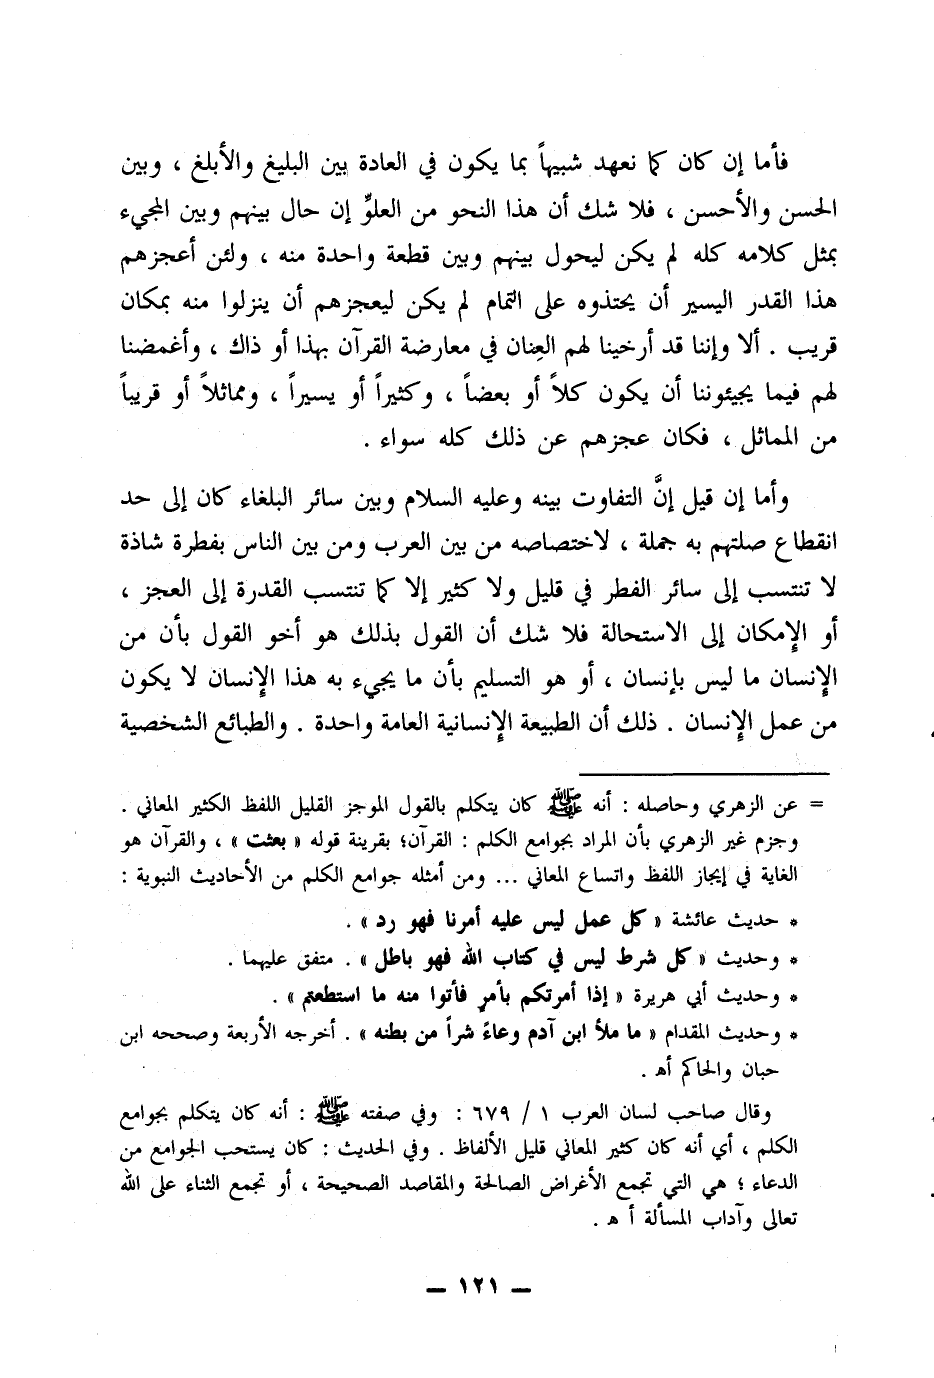 فأما إن كان كما نعهد شبيهاً بما يكون في العادة بين البليغ والأبلغ ، وبين
الحسن والأحسن ، فلا شك أن هذا النحو من العلوِّ إن حال بينهم وبين المجيء
بمثل كلامه كله لم يكن ليحول بينهم وبين قطعة واحدة منه ، ولئن أعجزهم
هذا القدر اليسير أن يحتذوه على التمام لم يكن ليعجزهم أن ينزلوا منه بمكان
قريب . ألا وإننا قد أرخينا لهم العِنان في معارضة القرآن بهذا أو ذاك ، وأغمضنا
لهم فيما يجيئوننا أن يكون كلاً أو بعضاً ، وكثيراً أو يسيراً ، ومماثلاً أو قريباً
من المماثل ، فكان عجزهم عن ذلك كله سواء .
وأما إن قيل إنَّ التفاوت بينه وعليه السلام وبين سائر البلغاء كان إلى حد
انقطاع صلتهم به جملة ، لاختصاصه من بين العرب ومن بين الناس بفطرة شاذة
لا تنتسب إلى سائر الفطر في قليل ولا كثير إلا كما تنتسب القدرة إلى العجز ،
أو الإمكان إلى الاستحالة فلا شك أن القول بذلك هو أخو القول بأن من
الإنسان ما ليس بإنسان ، أو هو التسليم بأن ما يجيء به هذا الإنسان لا يكون
من عمل الإنسان . ذلك أن الطبيعة الإنسانية العامة واحدة . والطبائع الشخصية
= عن الزهري وحاصله : أنه ﷺ كان يتكلم بالقول الموجز القليل اللفظ الكثير المعاني .
وجزم غير الزهري بأن المراد بجوامع الكلم : القرآن؛ بقرينة قوله « بعثت » ، والقرآن هو
الغاية في إيجاز اللفظ واتساع المعاني ... ومن أمثله جوامع الكلم من الأحاديث النبوية :
* حديث عائشة « كل عمل ليس عليه أمرنا فهو رد » .
* وحديث « كل شرط ليس في كتاب الله فهو باطل » . متفق عليهما .
* وحديث أبي هريرة « إذا أمرتكم بأمرٍ فأتوا منه ما استطعتم » .
* وحديث المقدام « ما ملأ ابن آدم وعاءً شراً من بطنه » . أخرجه الأربعة وصححه ابن
حبان والحاكم أهـ .
وقال صاحب لسان العرب ١ / ٦٧٩ : وفي صفته ﷺ : أنه كان يتكلم بجوامع
الكلم ، أي أنه كان كثير المعاني قليل الألفاظ . وفي الحديث : كان يستحب الجوامع من
الدعاء ؛ هي التي تجمع الأغراض الصالحة والمقاصد الصحيحة ، أو تجمع الثناء على الله
تعالى وآداب المسألة أ هـ .
— ١٢١ —